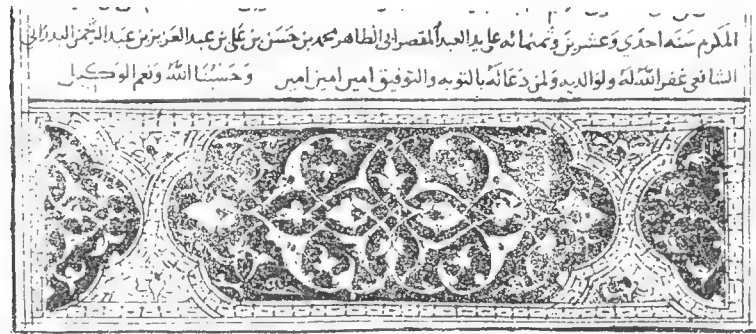 المكرم سنه احدي وعشرين وثمنمائه علي يد العبد المقصر ابى الطاهر محمد بن حسن بن علي بن عبد العزيز بن عبد الرحمن البدراني
الشافعي غفر الله له ولوالديه ولمن دعا له بالتوبه والتوفيق امير امين امين وحسبنا الله ونعم الوكيل